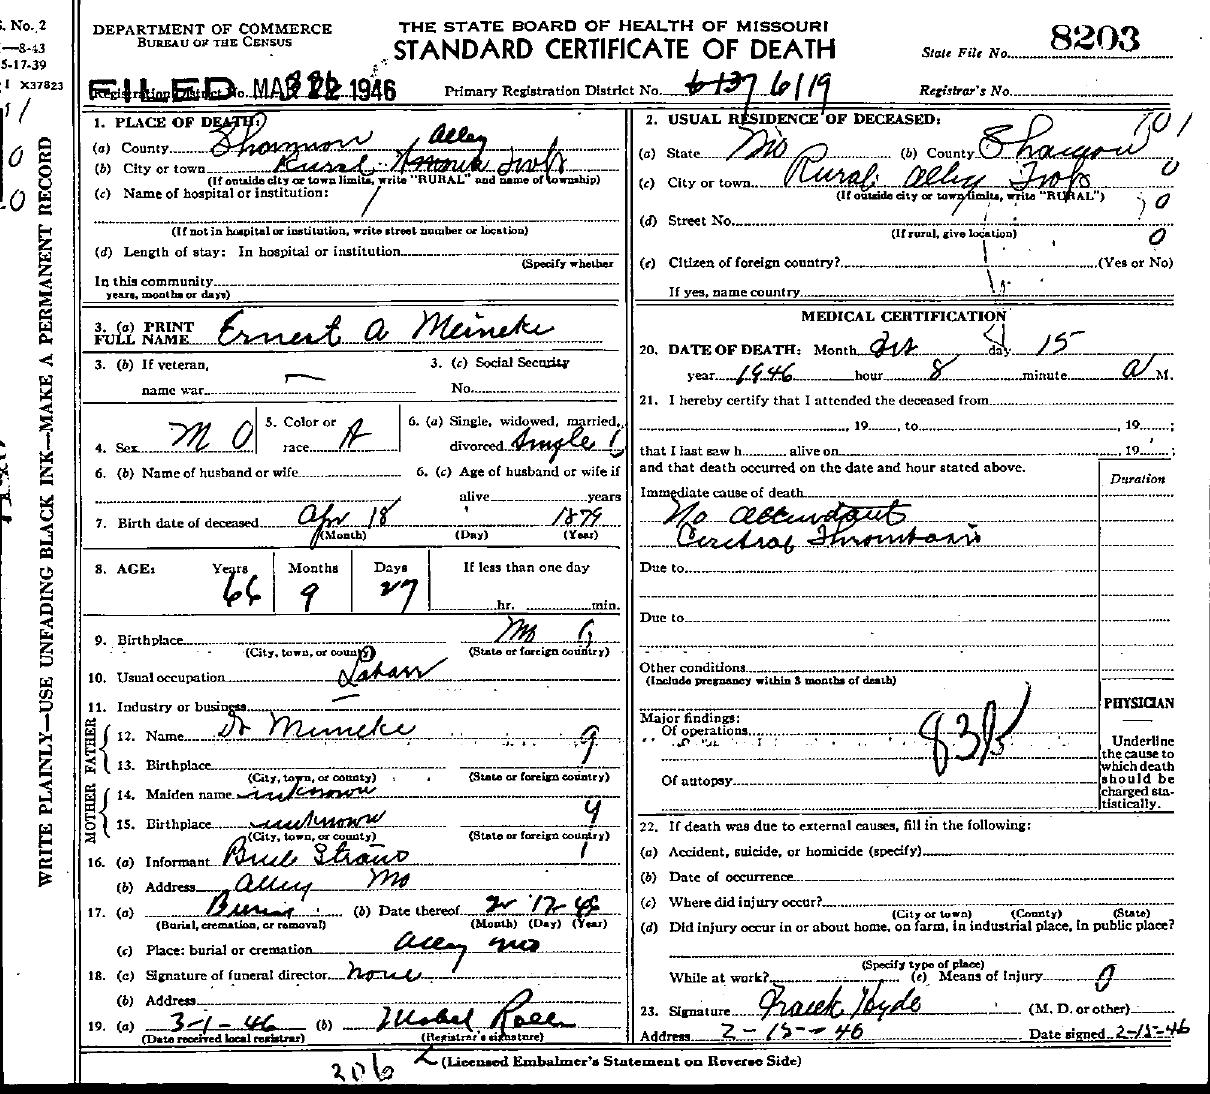 S. No. 2
—8-43
5-17-39
I X37823
DEPARTMENT OF COMMERCE
BUREAU OF THE CENSUS
THE STATE BOARD OF HEALTH OF MISSOURI
STANDARD CERTIFICATE OF DEATH
State File No. 8203
FILED MAR 22 1946
Registration District No.
Primary Registration District No. 6137 6119
Registrar's No.
WRITE PLAINLY—USE UNFADING BLACK INK—MAKE A PERMANENT RECORD
1. PLACE OF DEATH:
(a) County Shannon Alley
(b) City or town Rural Twp
(If outside city or town limits, write "RURAL" and name of township)
(c) Name of hospital or institution:
(If not in hospital or institution, write street number or location)
(d) Length of stay: In hospital or institution
(Specify whether
In this community
years, months or days)
3. (a) PRINT FULL NAME Ernest A Meineke
3. (b) If veteran,
name war —
3. (c) Social Security
No.
4. Sex M O
5. Color or race
6. (a) Single, widowed, married, divorced Single 1
6. (b) Name of husband or wife
6. (c) Age of husband or wife if
alive years
7. Birth date of deceased Apr 18 1879
(Month) (Day) (Year)
8. AGE: Years Months Days If less than one day
66 9 27 hr. min.
9. Birthplace Mo
(City, town, or county) (State or foreign country)
10. Usual occupation
11. Industry or business
FATHER
12. Name Dr Meineke 9
13. Birthplace
(City, town, or county) (State or foreign country)
MOTHER
14. Maiden name unknown
15. Birthplace unknown 4
(City, town, or county) (State or foreign country)
16. (a) Informant
(b) Address Alley Mo
17. (a) Burial (b) Date thereof 2 17 46
(Burial, cremation, or removal) (Month) (Day) (Year)
(c) Place: burial or cremation Alley Mo
18. (a) Signature of funeral director none
(b) Address
19. (a) 3-1-46 (b) Mabel
(Date received local registrar) (Registrar's signature)
2. USUAL RESIDENCE OF DECEASED: 101
(a) State Mo (b) County Shannon 0
(c) City or town Rural Alley Twp
(If outside city or town limits, write "RURAL") 0
(d) Street No.
(If rural, give location) 0
(e) Citizen of foreign country? (Yes or No)
If yes, name country
MEDICAL CERTIFICATION
20. DATE OF DEATH: Month day 15
year 1946 hour 8 minute A M.
21. I hereby certify that I attended the deceased from
, 19 , to , 19 ;
that I last saw h alive on , 19 ;
and that death occurred on the date and hour stated above.
Duration
Immediate cause of death
No attendant
Cerebral Thrombosis
Due to
Due to
Other conditions
(Include pregnancy within 3 months of death)
Major findings:
Of operations
Of autopsy
83b
PHYSICIAN
Underline the cause to which death should be charged statistically.
22. If death was due to external causes, fill in the following:
(a) Accident, suicide, or homicide (specify)
(b) Date of occurrence
(c) Where did injury occur?
(City or town) (County) (State)
(d) Did injury occur in or about home, on farm, in industrial place, in public place?
(Specify type of place)
While at work? (e) Means of Injury 0
23. Signature Frank Hyde (M. D. or other)
Address 2-15-46 Date signed 2-15-46
206
(Licensed Embalmer's Statement on Reverse Side)